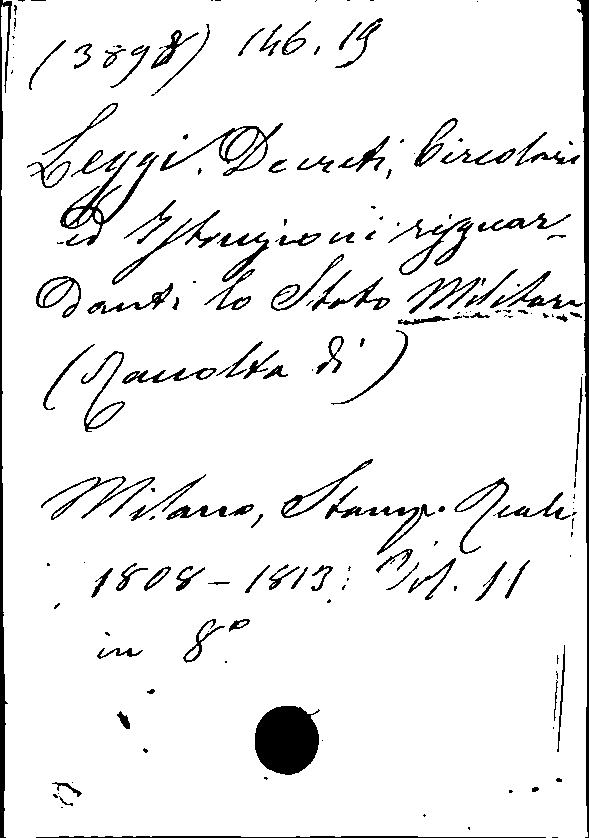 (3898) 146.19
Leggi. Decreti, Circolari
ed Istruzioni riguar-
danti lo Stato Militare
(Raccolta di)
Milano, Stamp. Reale
1808-1813: Vol. 11
in 8º